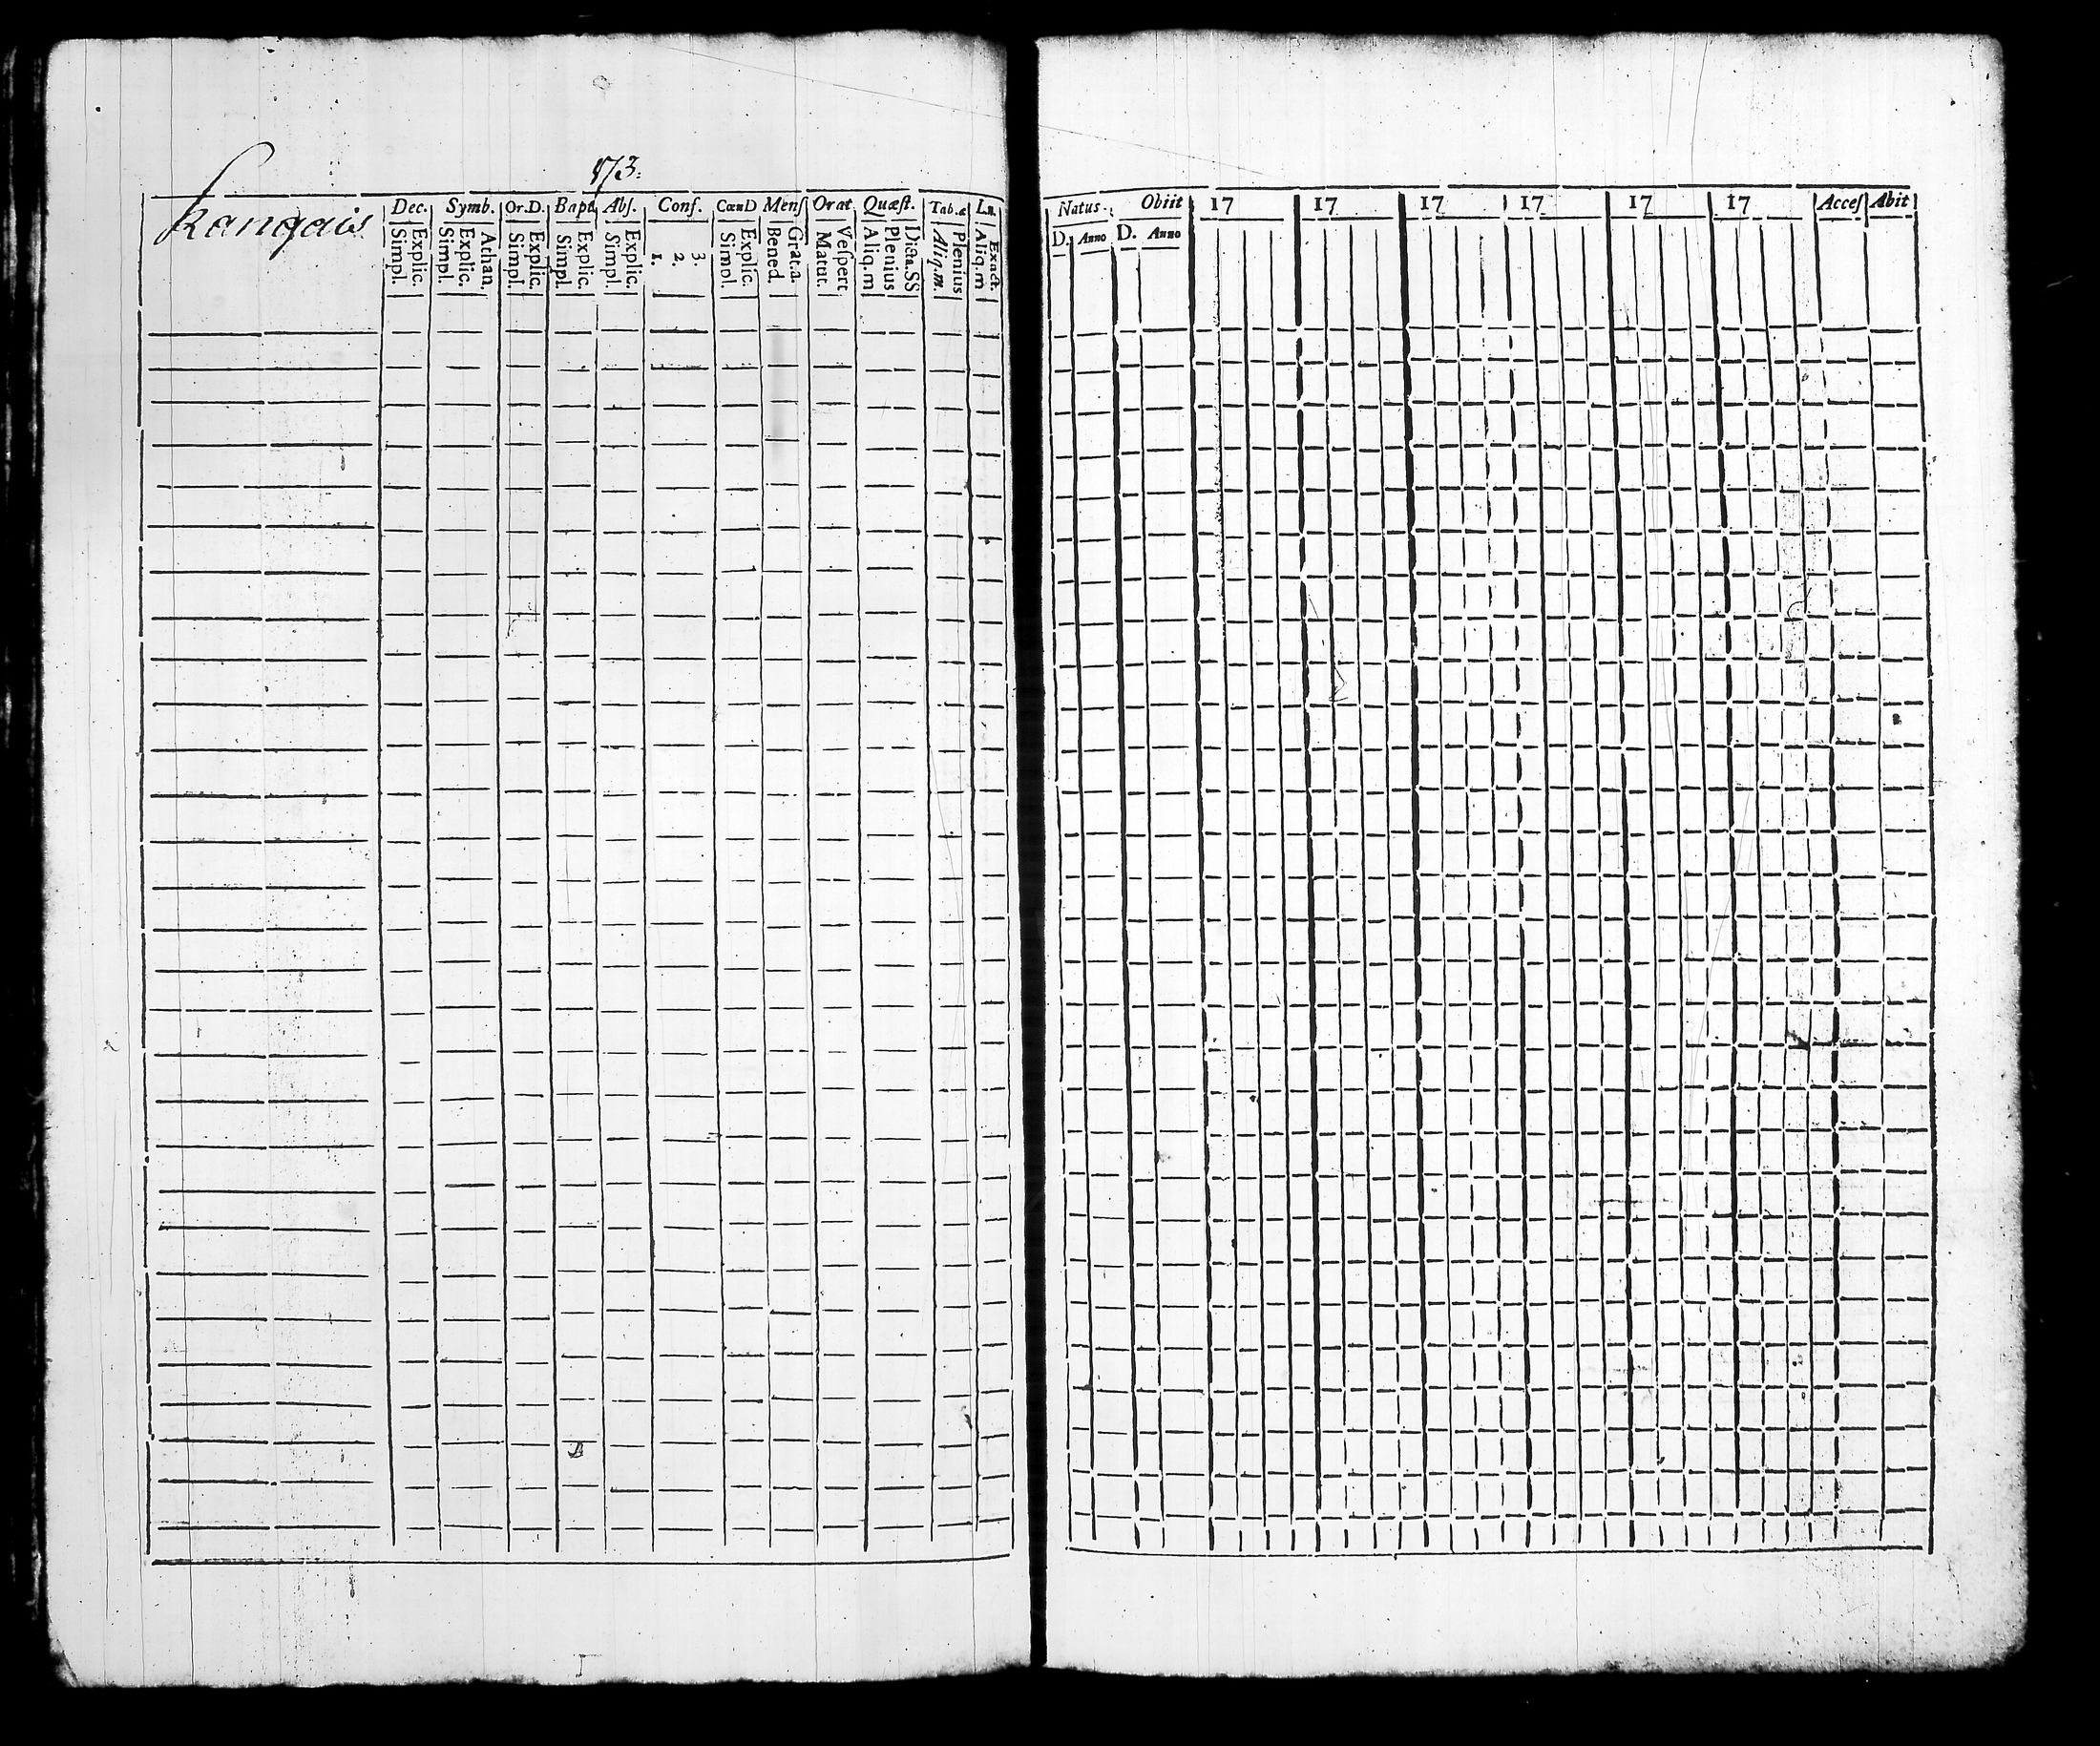 173.
Kangais
Dec. Symb. Or.D. Bapt Abſ. Conf. CœnD Menſ Orat Quæſt. Tab.æ L.n.
Simpl. Explic. Simpl. Explic. Athan. Simpl. Explic. Simpl. Explic. Simpl. Explic. 1. 2. 3. Simpl. Explic. Bened. Grat.a. Matut. Veſpert Aliq.m Plenius Dicta.SS Aliq.m. Plenius Aliq.m Exact.
Natus. Obiit 17 17 17 17 17 17 Acceſ Abit
D. Anno D. Anno